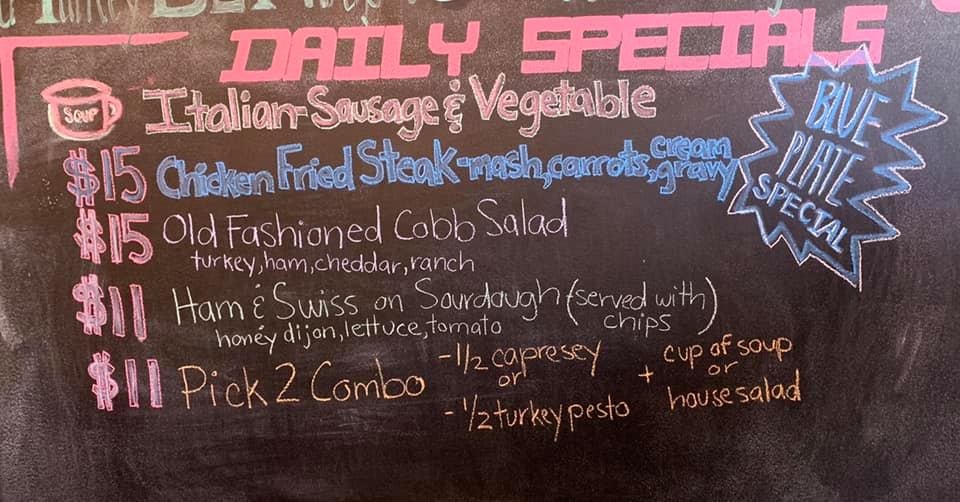 DAILY SPECIALS
SOUP Italian-Sausage & Vegetable
$15 Chicken Fried Steak-mash, carrots, cream gravy
BLUE
PLATE
SPECIAL
$15 Old Fashioned Cobb Salad
turkey, ham, cheddar, ranch
$11 Ham & Swiss on Sourdaugh (served with chips)
honey dijon, lettuce, tomato
$11 Pick 2 Combo
-1/2 capresey
or
-1/2 turkey pesto
+ cup of soup
or
house salad